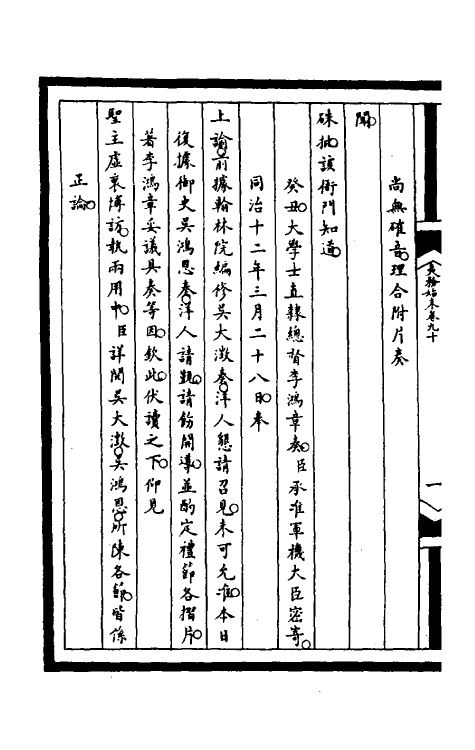 夷務始末卷九十
一
尚無確音理合附片奏
聞
硃批該衙門知道
癸丑大學士直隸總督李鴻章奏臣承准軍機大臣密寄
同治十二年三月二十八日奉
上諭前據翰林院編修吳大澂奏洋人懇請召見未可允准本日
復據御史吳鴻恩奏洋人請覲請飭開導並酌定禮節各摺片
著李鴻章妥議具奏等因欽此伏讀之下仰見
聖主虛衷博訪執兩用中臣詳閱吳大澂吳鴻恩所陳各節皆係
正論